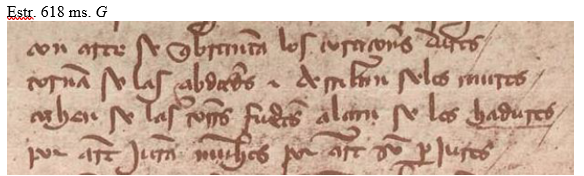 Estr. 618 ms. G
con arte se q̃brantã los coraçon̄s duros
tomã se las çibdad̄s e derriban se los muros
cahen se las torrs̄ fuerts̄ alçan se los haduros
por art̄ jurã muchos por art̄ sõ ꝑjuros